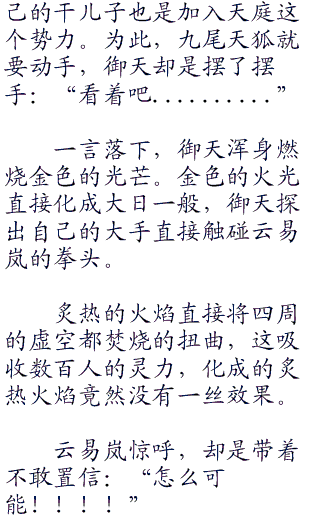 己的干儿子也是加入天庭这
个势力。为此，九尾天狐就
要动手，御天却是摆了摆
手：“看着吧..........”
一言落下，御天浑身燃
烧金色的光芒。金色的火光
直接化成大日一般，御天探
出自己的大手直接触碰云易
岚的拳头。
炙热的火焰直接将四周
的虚空都焚烧的扭曲，这吸
收数百人的灵力，化成的炙
热火焰竟然没有一丝效果。
云易岚惊呼，却是带着
不敢置信：“怎么可
能！！！！”